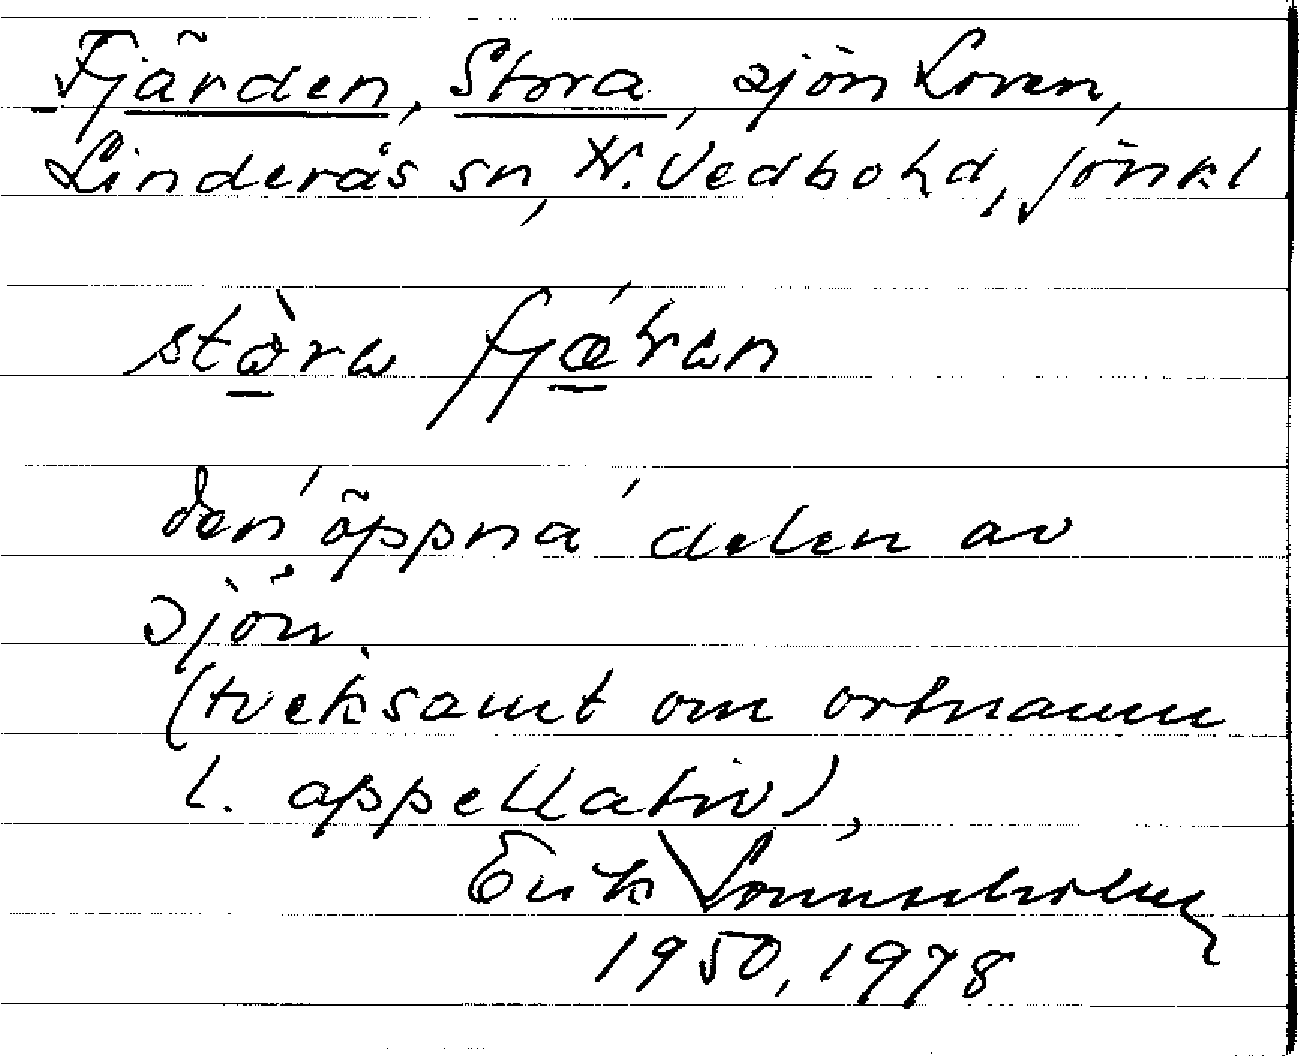 Fjärden, Stora, sjön Loren,
Linderås sn, N. Vedbo hd, Jönk l
stòra fjæ´ran
den 'öppna' delen av
sjön.
(tveksamt om ortnamn
l. appellativ),
Erik
1950, 1978